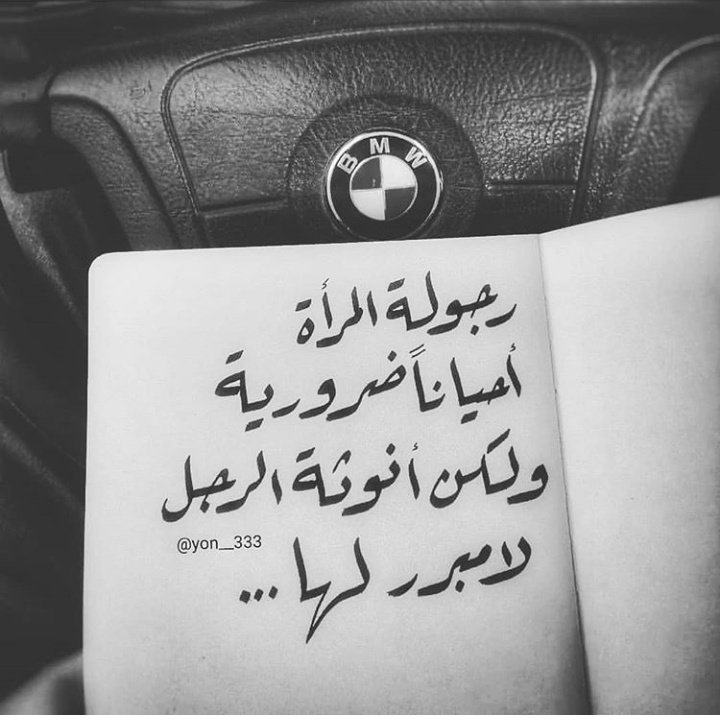 BMW
رجولة المرأة
أحياناً ضرورية
ولكن أنوثة الرجل
@yon__333
لامبرر لها ...